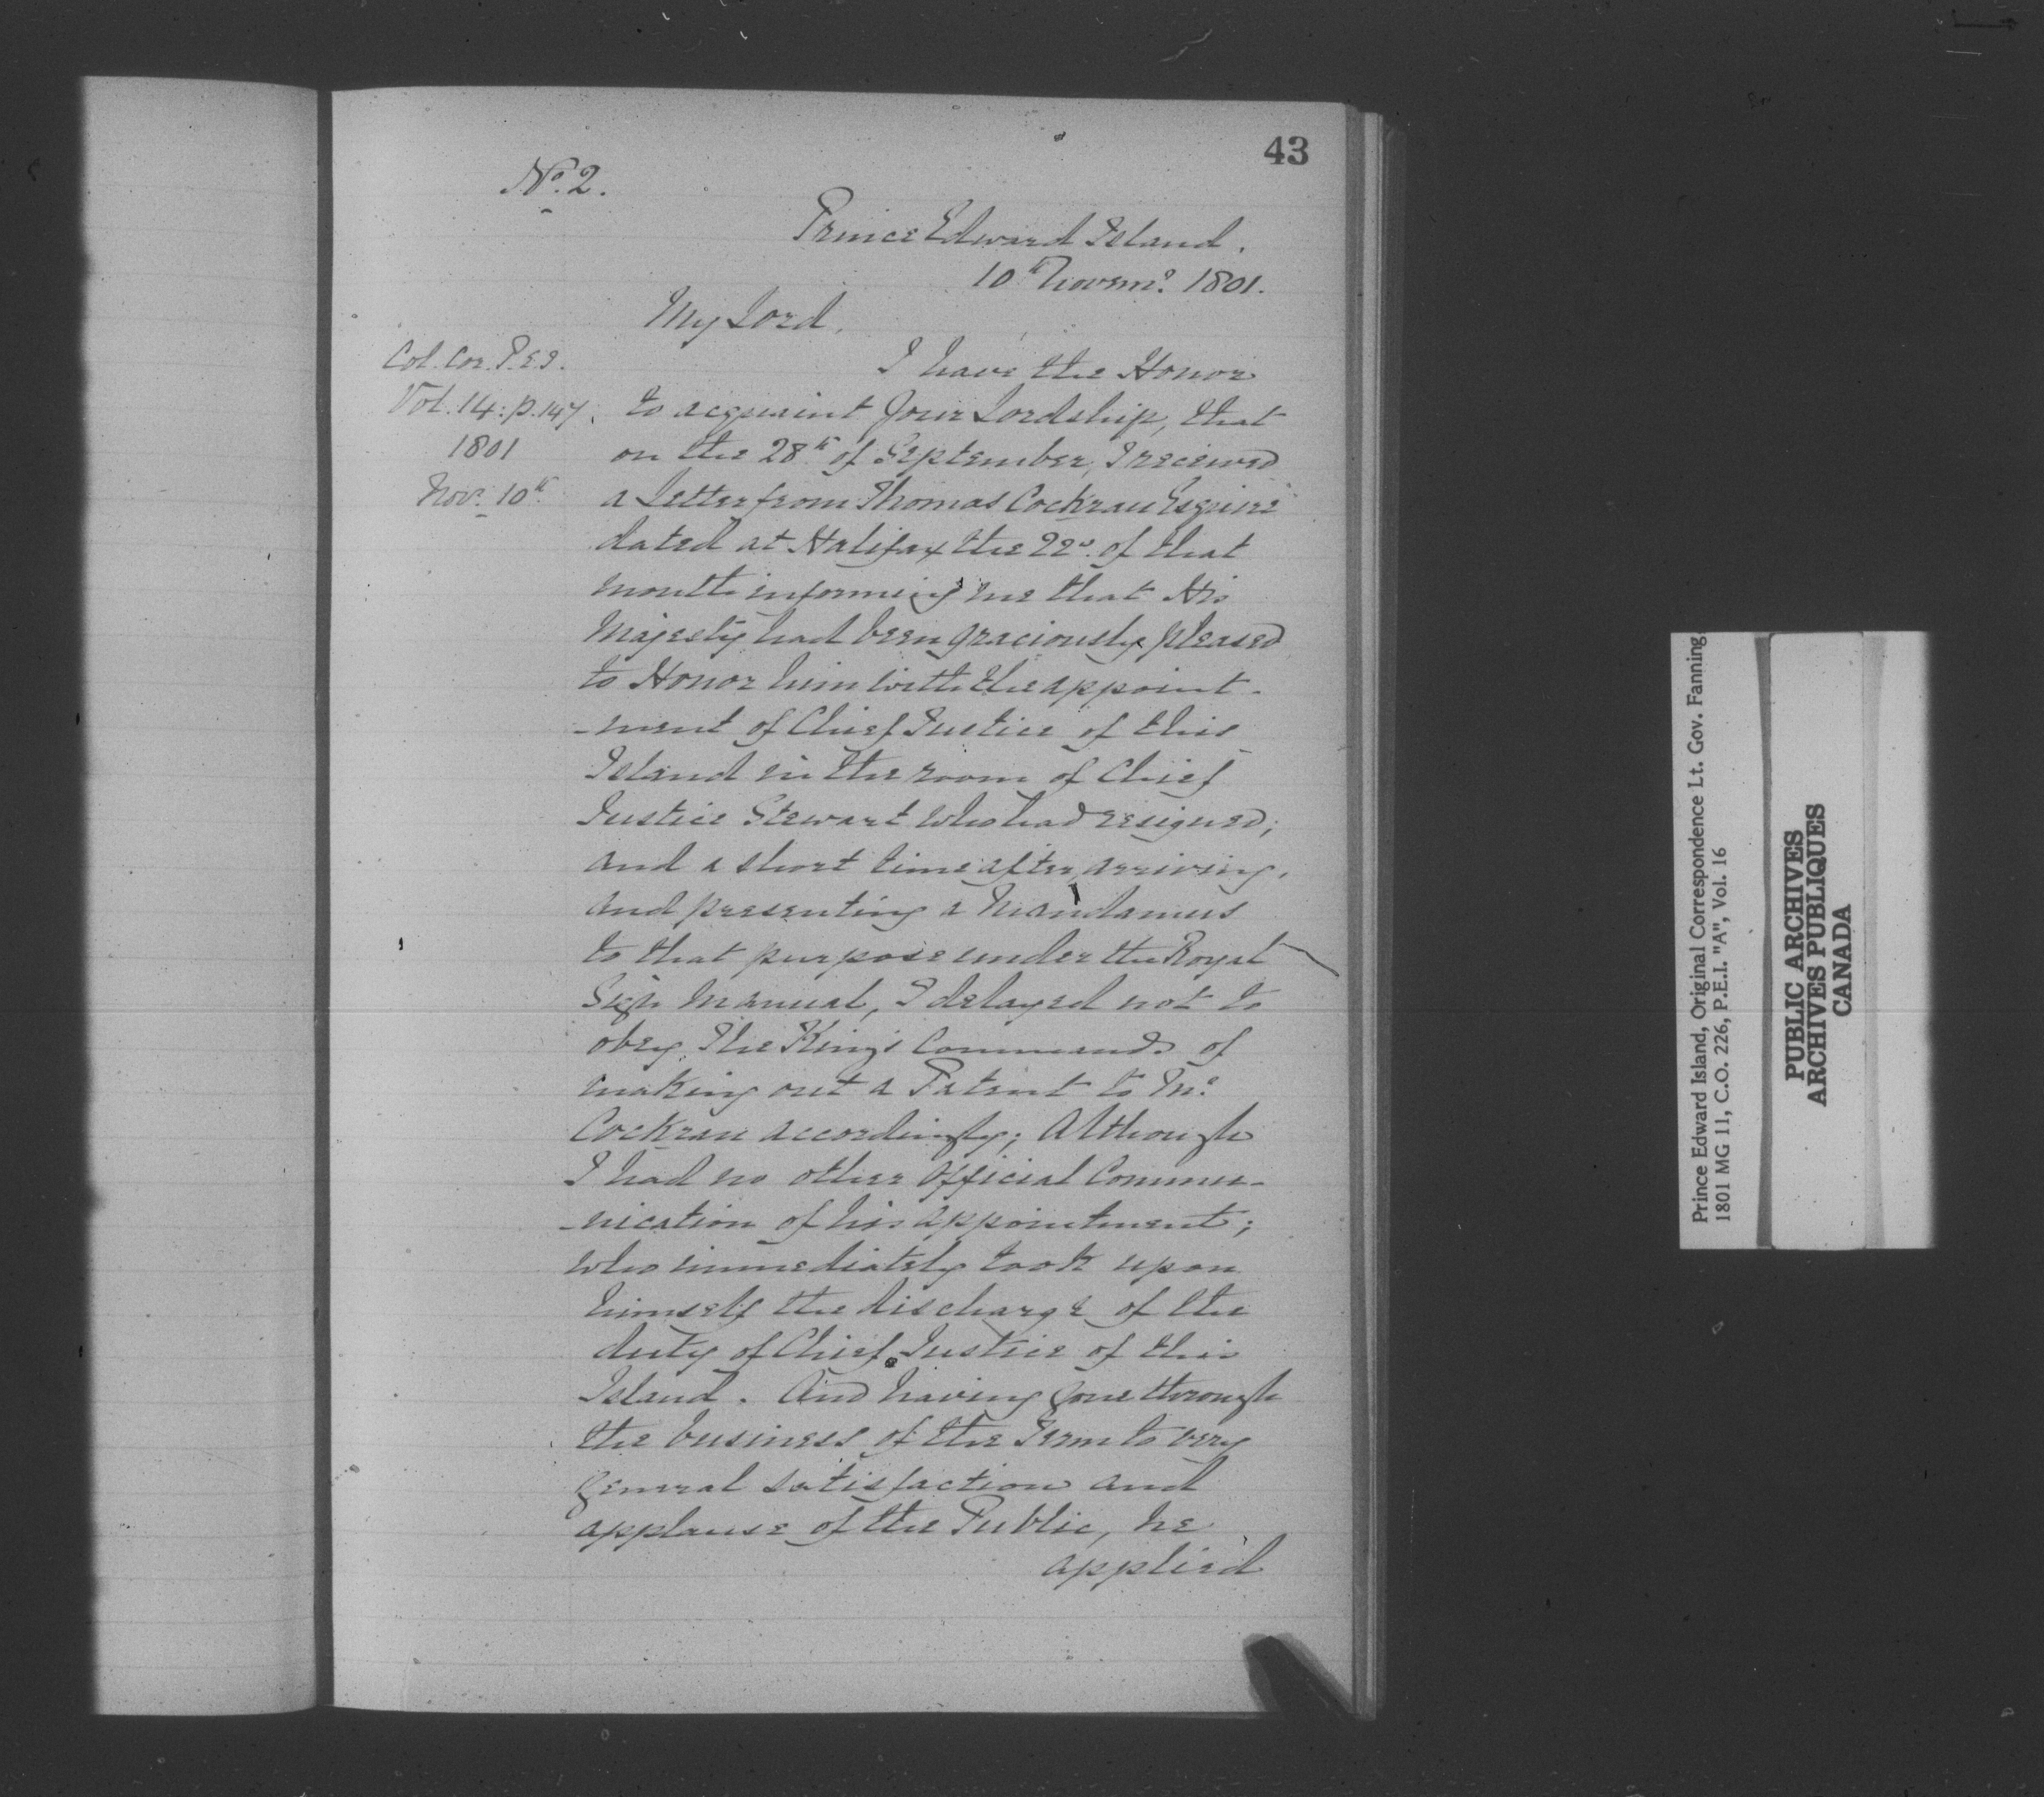 43
No. 2.
Prince Edward Island.
10th Novemr. 1801.
My Lord,
Col. Cor. P.E.I.
Vol. 14: p. 147.
1801
Nov. 10th
I have the Honor
to acquaint Your Lordship, that
on the 28th of September, I received
a Letter from Thomas Cockran Esquire
dated at Halifax the 22d. of that
month informing me that His
Majesty had been graciously pleased
to Honor him with the appoint-
-ment of Chief Justice of this
Island in the room of Chief
Justice Stewart who had resigned;
and a short time after, arriving,
and presenting a Mandamus
to that purpose under the Royal
Sign Manual, I delayed not to
obey The King's Commands of
making out a Patent to Mr.
Cockran accordingly; Although
I had no other Official Commu-
-nication of his appointment;
who immediately took upon
himself the discharge of the
duty of Chief Justice of this
Island. And having gone through
the business of the Term to very
general satisfaction and
applause of the Public, he
applied
Prince Edward Island, Original Correspondence Lt. Gov. Fanning
1801 MG 11, C.O. 226, P.E.I. "A", Vol. 16
PUBLIC ARCHIVES
ARCHIVES PUBLIQUES
CANADA